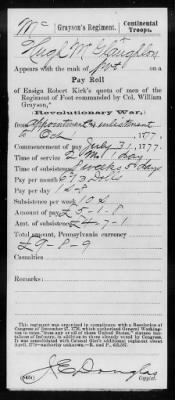 Mc | Grayson's Regiment. | Continental Troops.
Hugh McGlaughlon
Appears with the rank of Pvt on a
Pay Roll
of Ensign Robert Kirk's quota of men of the
Regiment of Foot commanded by Col. William
Grayson,*
Revolutionary War,
from appointment or enlistment
to Oct 1, 1777.
Commencement of pay July 31, 1777.
Time of service 2 Ms 1 day
Time of subsistence 8 weeks 5 days
Pay per month 6 2/3 Dolls
Pay per day 1s-8
Subsistence per week 10s
Amount of pay £5-1-8
Amt. of subsistence £4-7-1
Total amount, Pennsylvania currency
£9-8-9
Casualties
Remarks:
J. E. Douglas
Copyist.